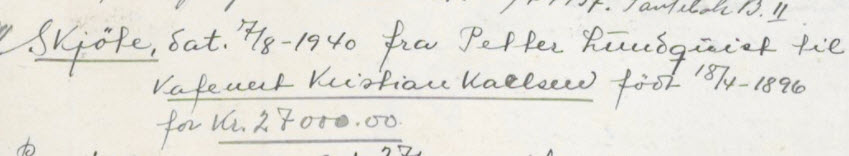 Pantebok B. II
Skjöte, dat. 7/8-1940 fra Petter Lundquist til
Kafevert Kristian Karlsen født 18/4-1896
for Kr. 27000.00